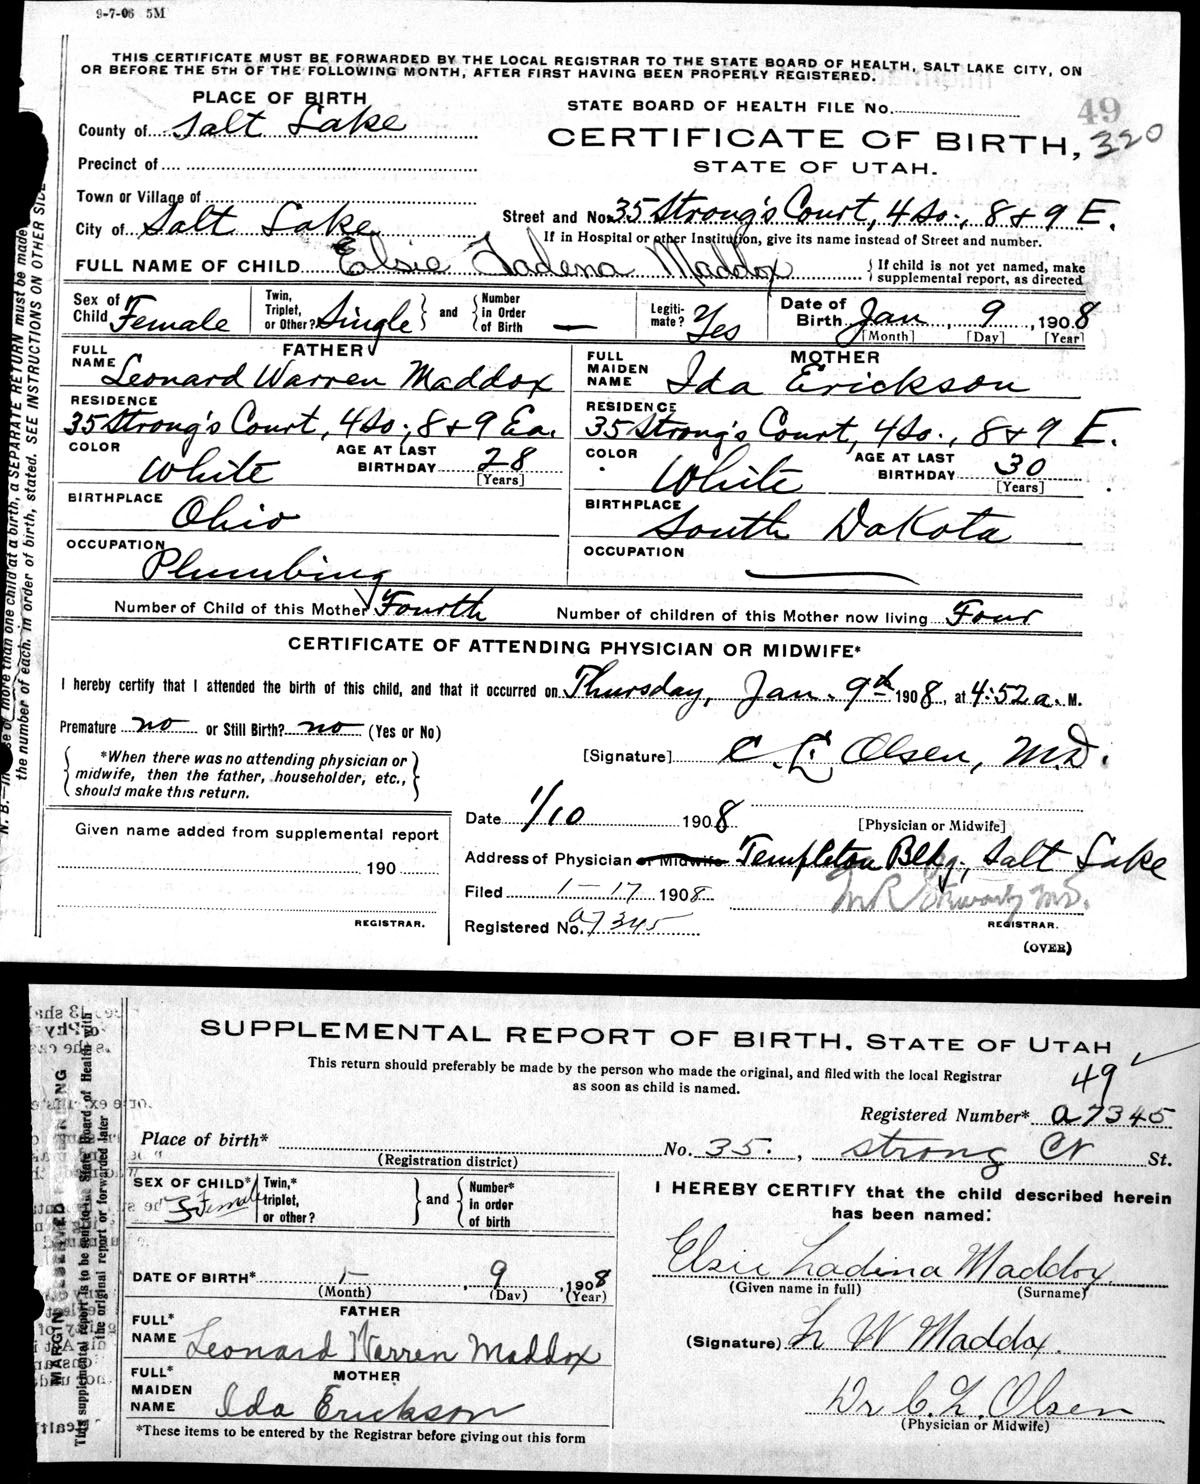 9-7-06 5M
THIS CERTIFICATE MUST BE FORWARDED BY THE LOCAL REGISTRAR TO THE STATE BOARD OF HEALTH, SALT LAKE CITY, ON
OR BEFORE THE 5TH OF THE FOLLOWING MONTH, AFTER FIRST HAVING BEEN PROPERLY REGISTERED.
PLACE OF BIRTH
STATE BOARD OF HEALTH FILE No. 49
County of Salt Lake
CERTIFICATE OF BIRTH, 320
Precinct of
STATE OF UTAH.
Town or Village of
Street and No. 35 Strong's Court, 4 So., 8 & 9 E.
City of Salt Lake
If in Hospital or other Institution, give its name instead of Street and number.
FULL NAME OF CHILD Elsie Ladena Maddox
If child is not yet named, make
supplemental report, as directed
Sex of Child Female
Twin, Triplet, or Other? Single and Number in Order of Birth —
Legitimate? Yes
Date of Birth Jan, 9, 1908
[Month] [Day] [Year]
FATHER
FULL NAME Leonard Warren Maddox
MOTHER
FULL MAIDEN NAME Ida Erickson
RESIDENCE
35 Strong's Court, 4 So., 8 & 9 Ea.
RESIDENCE
35 Strong's Court, 4 So., 8 & 9 E.
COLOR White
AGE AT LAST BIRTHDAY 28 [Years]
COLOR White
AGE AT LAST BIRTHDAY 30 [Years]
BIRTHPLACE Ohio
BIRTHPLACE South Dakota
OCCUPATION Plumbing
OCCUPATION —
Number of Child of this Mother Fourth
Number of children of this Mother now living Four
CERTIFICATE OF ATTENDING PHYSICIAN OR MIDWIFE*
I hereby certify that I attended the birth of this child, and that it occurred on Thursday, Jan. 9th 1908, at 4:52 a. M.
Premature no or Still Birth? no (Yes or No)
*When there was no attending physician or
midwife, then the father, householder, etc.,
should make this return.
[Signature] C. L. Olsen, M.D.
[Physician or Midwife]
Given name added from supplemental report
190
REGISTRAR.
Date 1/10 1908
Address of Physician or Midwife Templeton Bldg, Salt Lake
Filed 1-17 1908
M.D.
Registered No. a7345
REGISTRAR.
(OVER)
N. B.—In case of more than one child at a birth, a SEPARATE RETURN must be made
the number of each, in order of birth, stated. SEE INSTRUCTIONS ON OTHER SIDE
SUPPLEMENTAL REPORT OF BIRTH. STATE OF UTAH
This return should preferably be made by the person who made the original, and filed with the local Registrar
as soon as child is named.
49
Registered Number* a7345
Place of birth*
(Registration district)
No. 35. , Strong Ct St.
SEX OF CHILD* Female
Twin,* triplet, or other? and Number* in order of birth
I HEREBY CERTIFY that the child described herein
has been named:
Elsie Ladina Maddox
(Given name in full) (Surname)
DATE OF BIRTH* 1- , 9 , 1908
(Month) (Day) (Year)
FATHER
FULL* NAME Leonard Warren Maddox
(Signature) L W Maddox.
MOTHER
FULL* MAIDEN NAME Ida Erickson
Dr C. L. Olsen
(Physician or Midwife)
*These items to be entered by the Registrar before giving out this form
This supplemental report is to be sent to the State Board of Health with
the original report or forwarded later